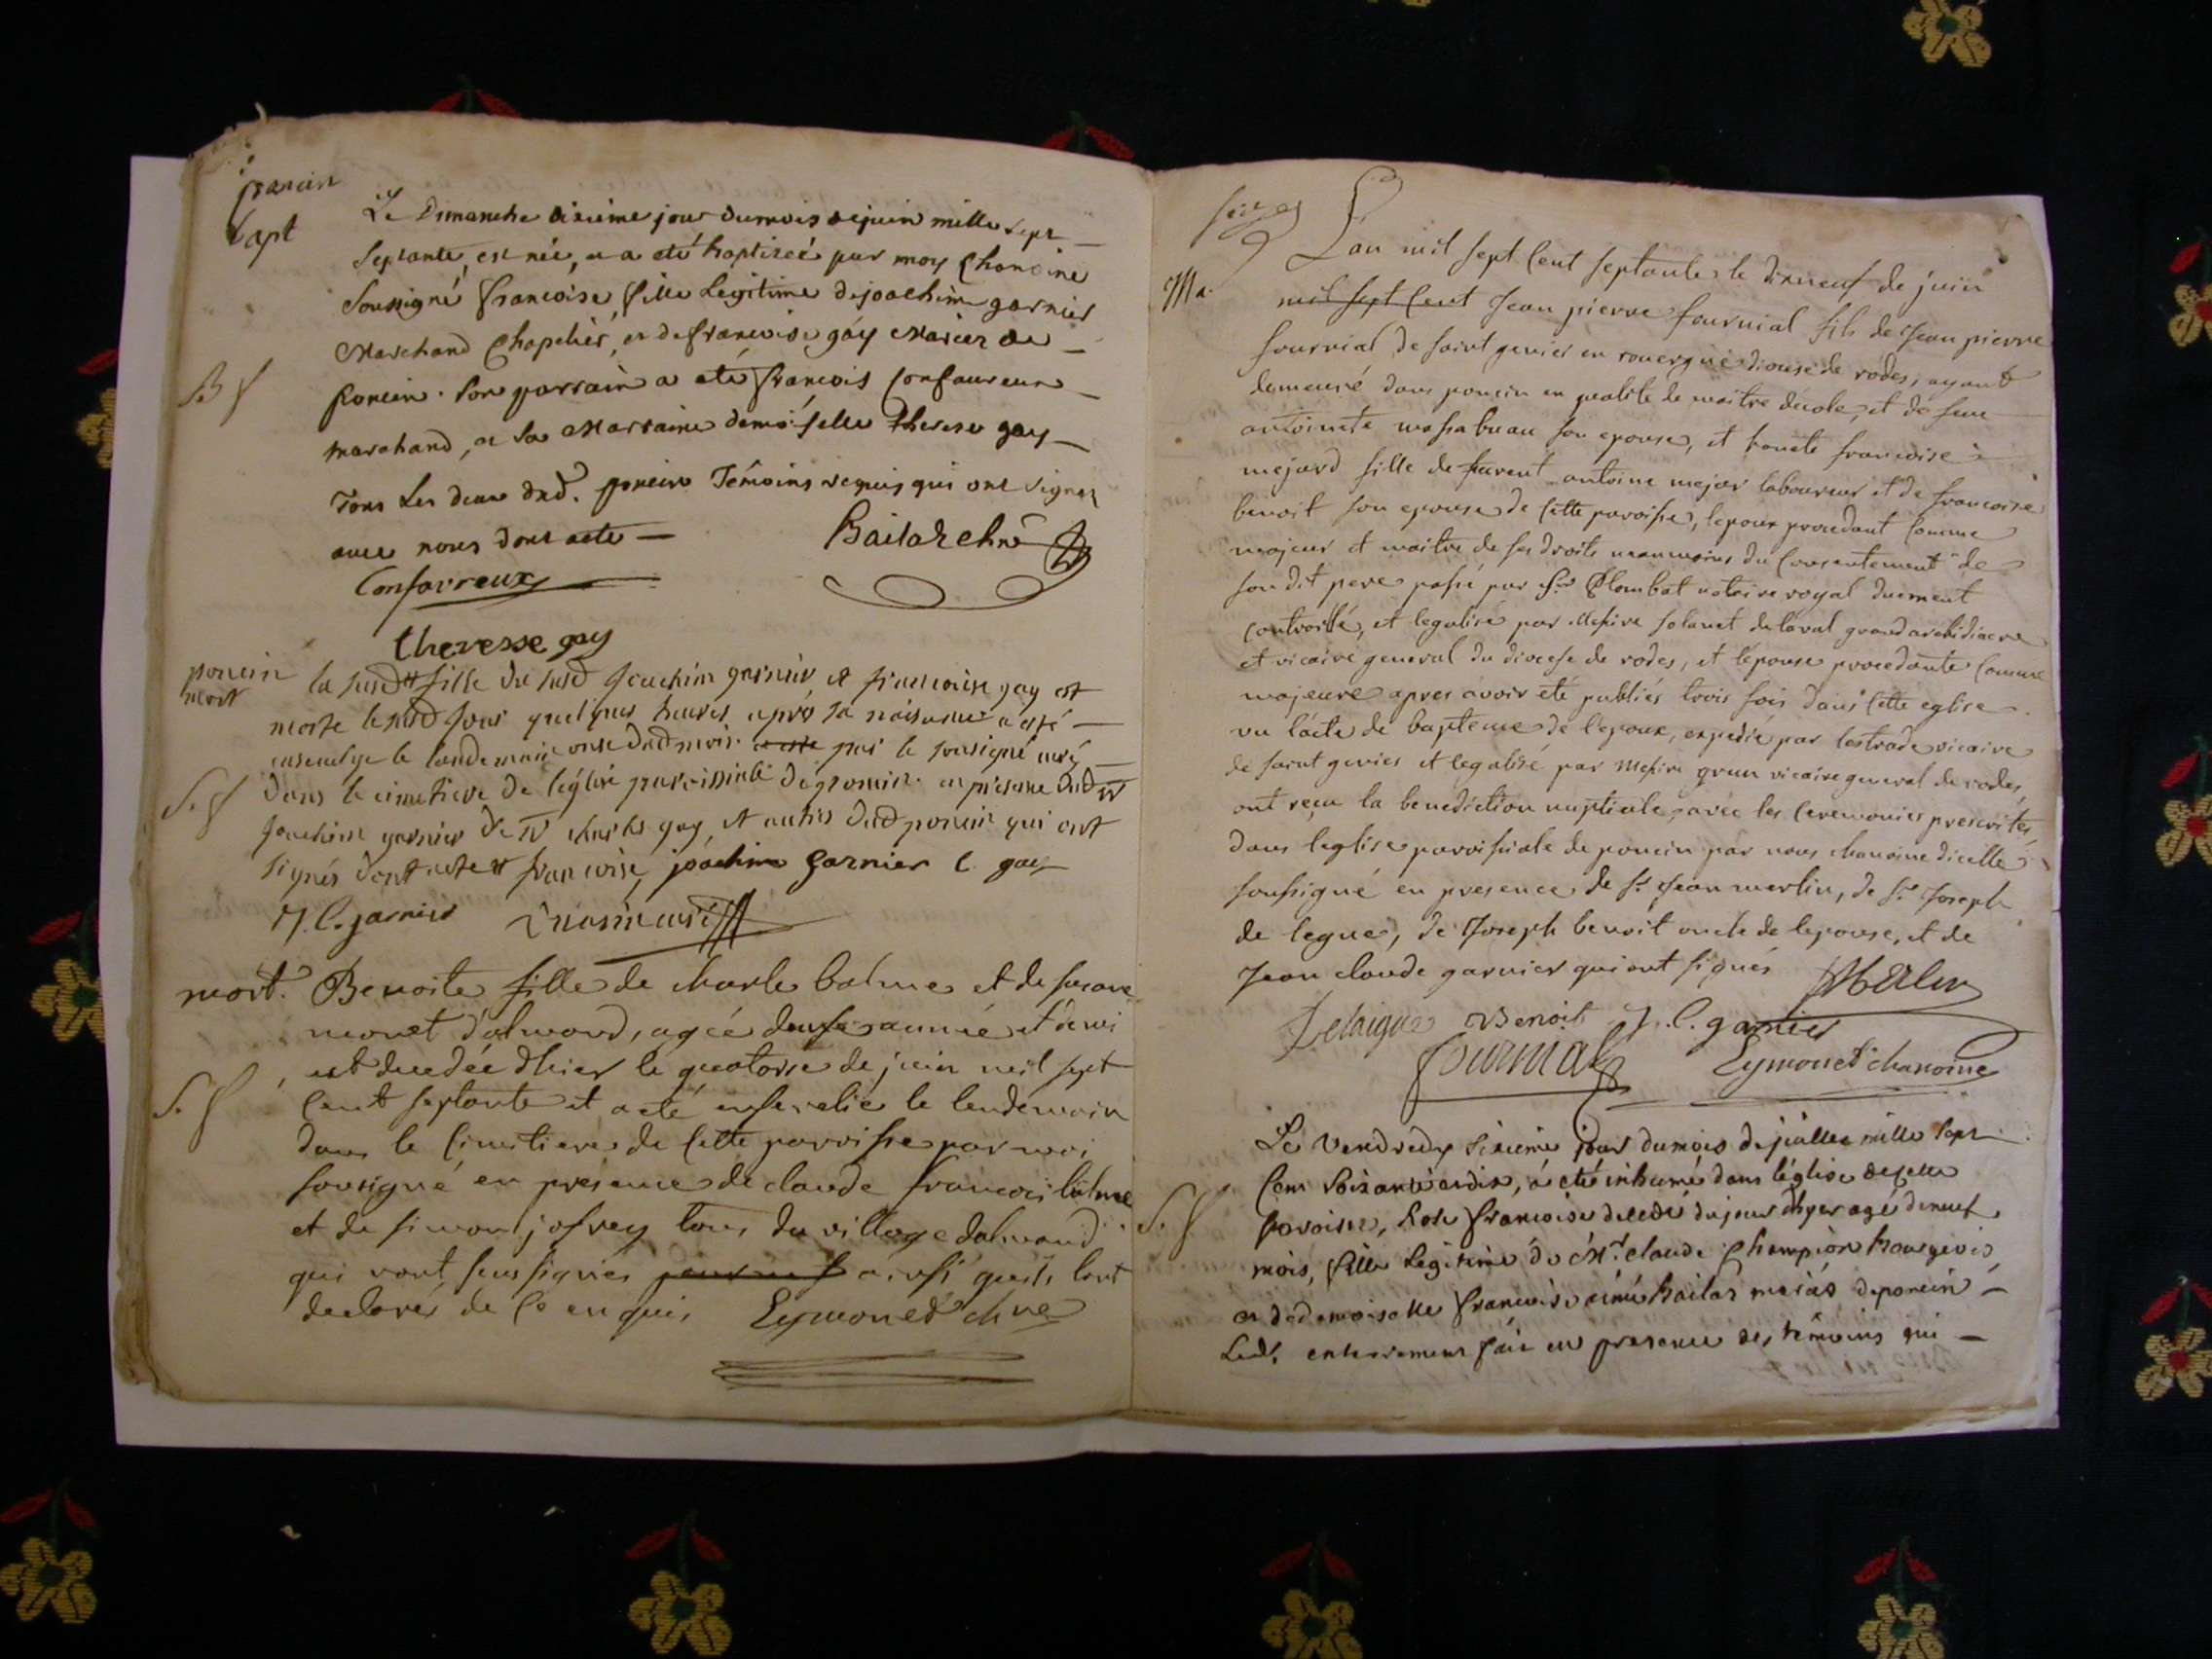 poncin
bapt
Le Dimanche dixieme jour du mois de juin mille sept
septante, est née, et a eté baptizeé par moy Chanoine
soussigné francoise fille Legitime de joachim garnier
Marchand Chapelier, et de francoise gay Mariez de
poncin. Son parrain a eté francois Confavreux
marchand, et sa Marraine demoiselle Therese gay
Tous Les deux dud. poncin Témoins requis qui ont signez
avec nous dont acte
B f
Confavreux
Bailaz chne
theresse gay
poncin
mort
la susdtt fille du susd joachim garnier et francoise gay est
morte le susd jour quelques heures apres sa naissance a esté
ensevelye le landemain onse dud mois par le sousigné curé
dans le cimetiere de l'églire paroissiale de poncin en presence dud
joachim garnier de charles gay et autres dud poncin qui ont
signés dont acte francoise joachim garnier C. gay
S. f
J. C. garnier
mort. Benoite fille de charle balme et de
monet d'almond, agée de année et demi
est decedée d'hier le quatorse de juin mil sept
S. f
Cent septante et a eté ensevelie le lendemain
dans le Cimetiere de Cette paroisse par moi
sousigné en présence de claude francois balme
et de simon jofrey tous du village dalmand
qui n'ont sous signés ainsi quils l'ont
declarés de Ce enquis Eymonet chne
seize
Ma.
L'an mil sept Cent septante le dixneuf de juin
mil sept Cent Jean pierre fournial fils de Jean pierre
fournial de saint geniés en rouergue diouse de rodes, ayant
demeuré dans poncin en qualité de maitre décole, et de feue
antoinete massabuau son epouse, et honete francoise
mejard fille de furent antoine mejar laboureur et de francoise
benoit son epouse de Cette paroisse, l'epoux procedant Comme
majeur et maitre de ses droits neanmoins du Consentement de
son dit pere passé par Sr Plombat notaire royal duement
Controllé, et legalisé par Messire solanet de laval grand archidiacre
et vicaire general du diocese de rodes, et l'épouse procedante Comme
majeure apres avoir eté publiés trois fois dans Cette eglise
vu l'acte de bapteme de l'epoux, expedié par lestrade vicaire
de saint genies et legalisé par Messire grun vicaire general de rodes,
ont reçu la benediction nuptiale, avec les Ceremonies prescrites,
dans leglise paroissiale de poncin par nous chanoine dicelle
soussigné en presence de Sr Jean merlin, de Sr Joseph
de legue, de Joseph benoit oncle de l'epouse, et de
Jean claude garnier qui ont signés Merlin
Delaigue Benoit J. C. garnier
fournial Eymonet chanoine
Le Vendredy sixieme jour du mois de juillet mille sept
Cent soixante et dix, a eté inhumé dans l'église de cette
S. f
paroisse, Rose francoise decedé du jour d'hyer agé de neuf
mois, fille Legitime de Mr. claude Champion bourgeois,
et de demoiselle francoise aimé Bailaz mariés de poncin
Led. enterrement fait en presence des témoins qui